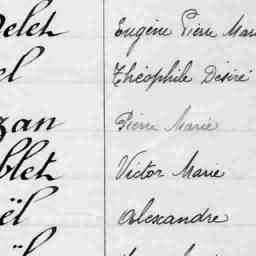 elet Eugène Pierre Mari
el Théophile Désiré
zan Pierre Marie
blet Victor Marie
ël Alexandre